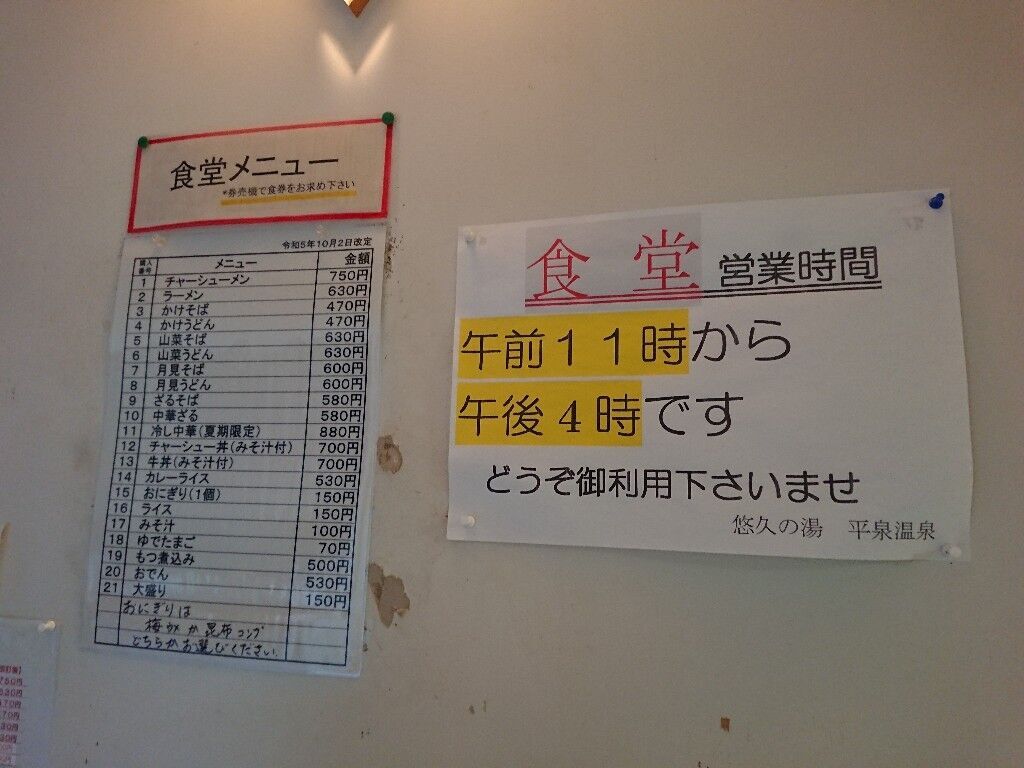 食堂メニュー
*券売機で食券をお求め下さい
令和5年10月2日改定
購入番号 メニュー 金額
1 チャーシューメン 750円
2 ラーメン 630円
3 かけそば 470円
4 かけうどん 470円
5 山菜そば 630円
6 山菜うどん 630円
7 月見そば 600円
8 月見うどん 600円
9 ざるそば 580円
10 中華ざる 580円
11 冷し中華(夏期限定) 880円
12 チャーシュー丼(みそ汁付) 700円
13 牛丼(みそ汁付) 700円
14 カレーライス 530円
15 おにぎり(1個) 150円
16 ライス 150円
17 みそ汁 100円
18 ゆでたまご 70円
19 もつ煮込み 500円
20 おでん 530円
21 大盛り 150円
おにぎりは
梅 か 昆布
どちらかお選びください.
食堂 営業時間
午前11時から
午後4時です
どうぞ御利用下さいませ
悠久の湯 平泉温泉
750円
630円
470円